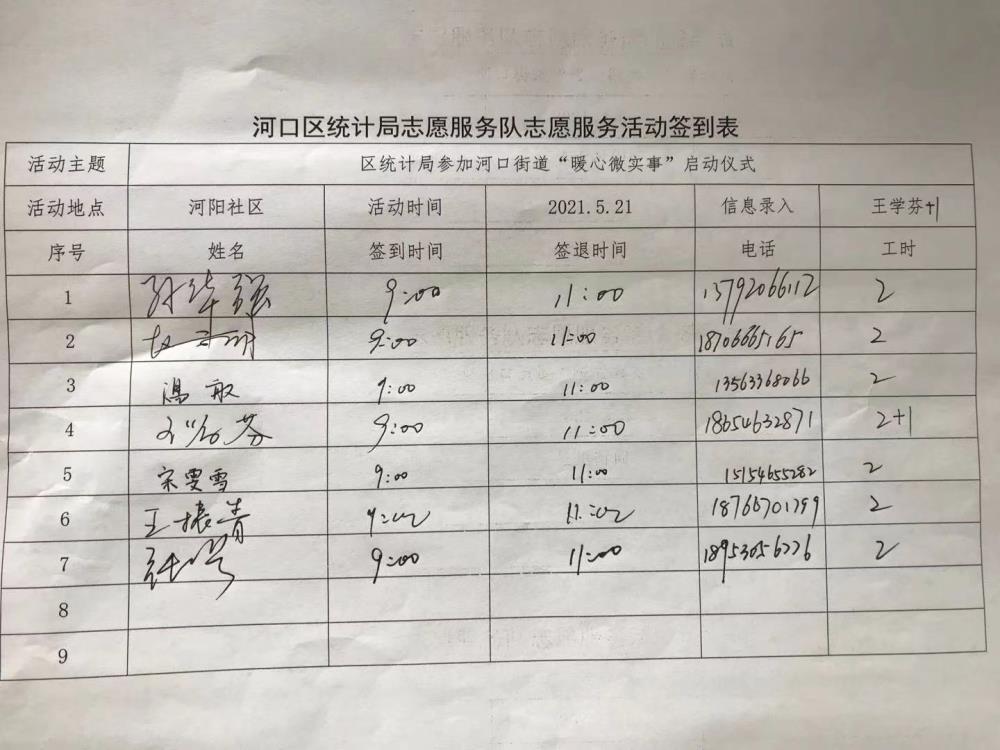 河口区统计局志愿服务队志愿服务活动签到表
活动主题 区统计局参加河口街道“暖心微实事”启动仪式
活动地点 河阳社区 活动时间 2021.5.21 信息录入 王学芬+1
序号 姓名 签到时间 签退时间 电话 工时
1 孙华强 9:00 11:00 13792066112 2
2 9:00 11:00 18706665165 2
3 冯敏 9:00 11:00 13563368066 2
4 9:00 11:00 18654632871 2+1
5 宋雯雪 9:00 11:00 15154655282 2
6 王振青 9:00 11:00 18766701799 2
7 9:00 11:00 18953056776 2
8
9